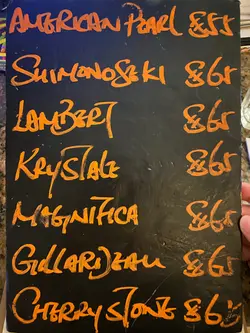 AMERICAN PEARL $55
SHIMONOSEKI $65
LAMBERT $65
KRYSTALE $65
MAGNIFICA $65
GILLARDEAU $65
CHERRY STONE